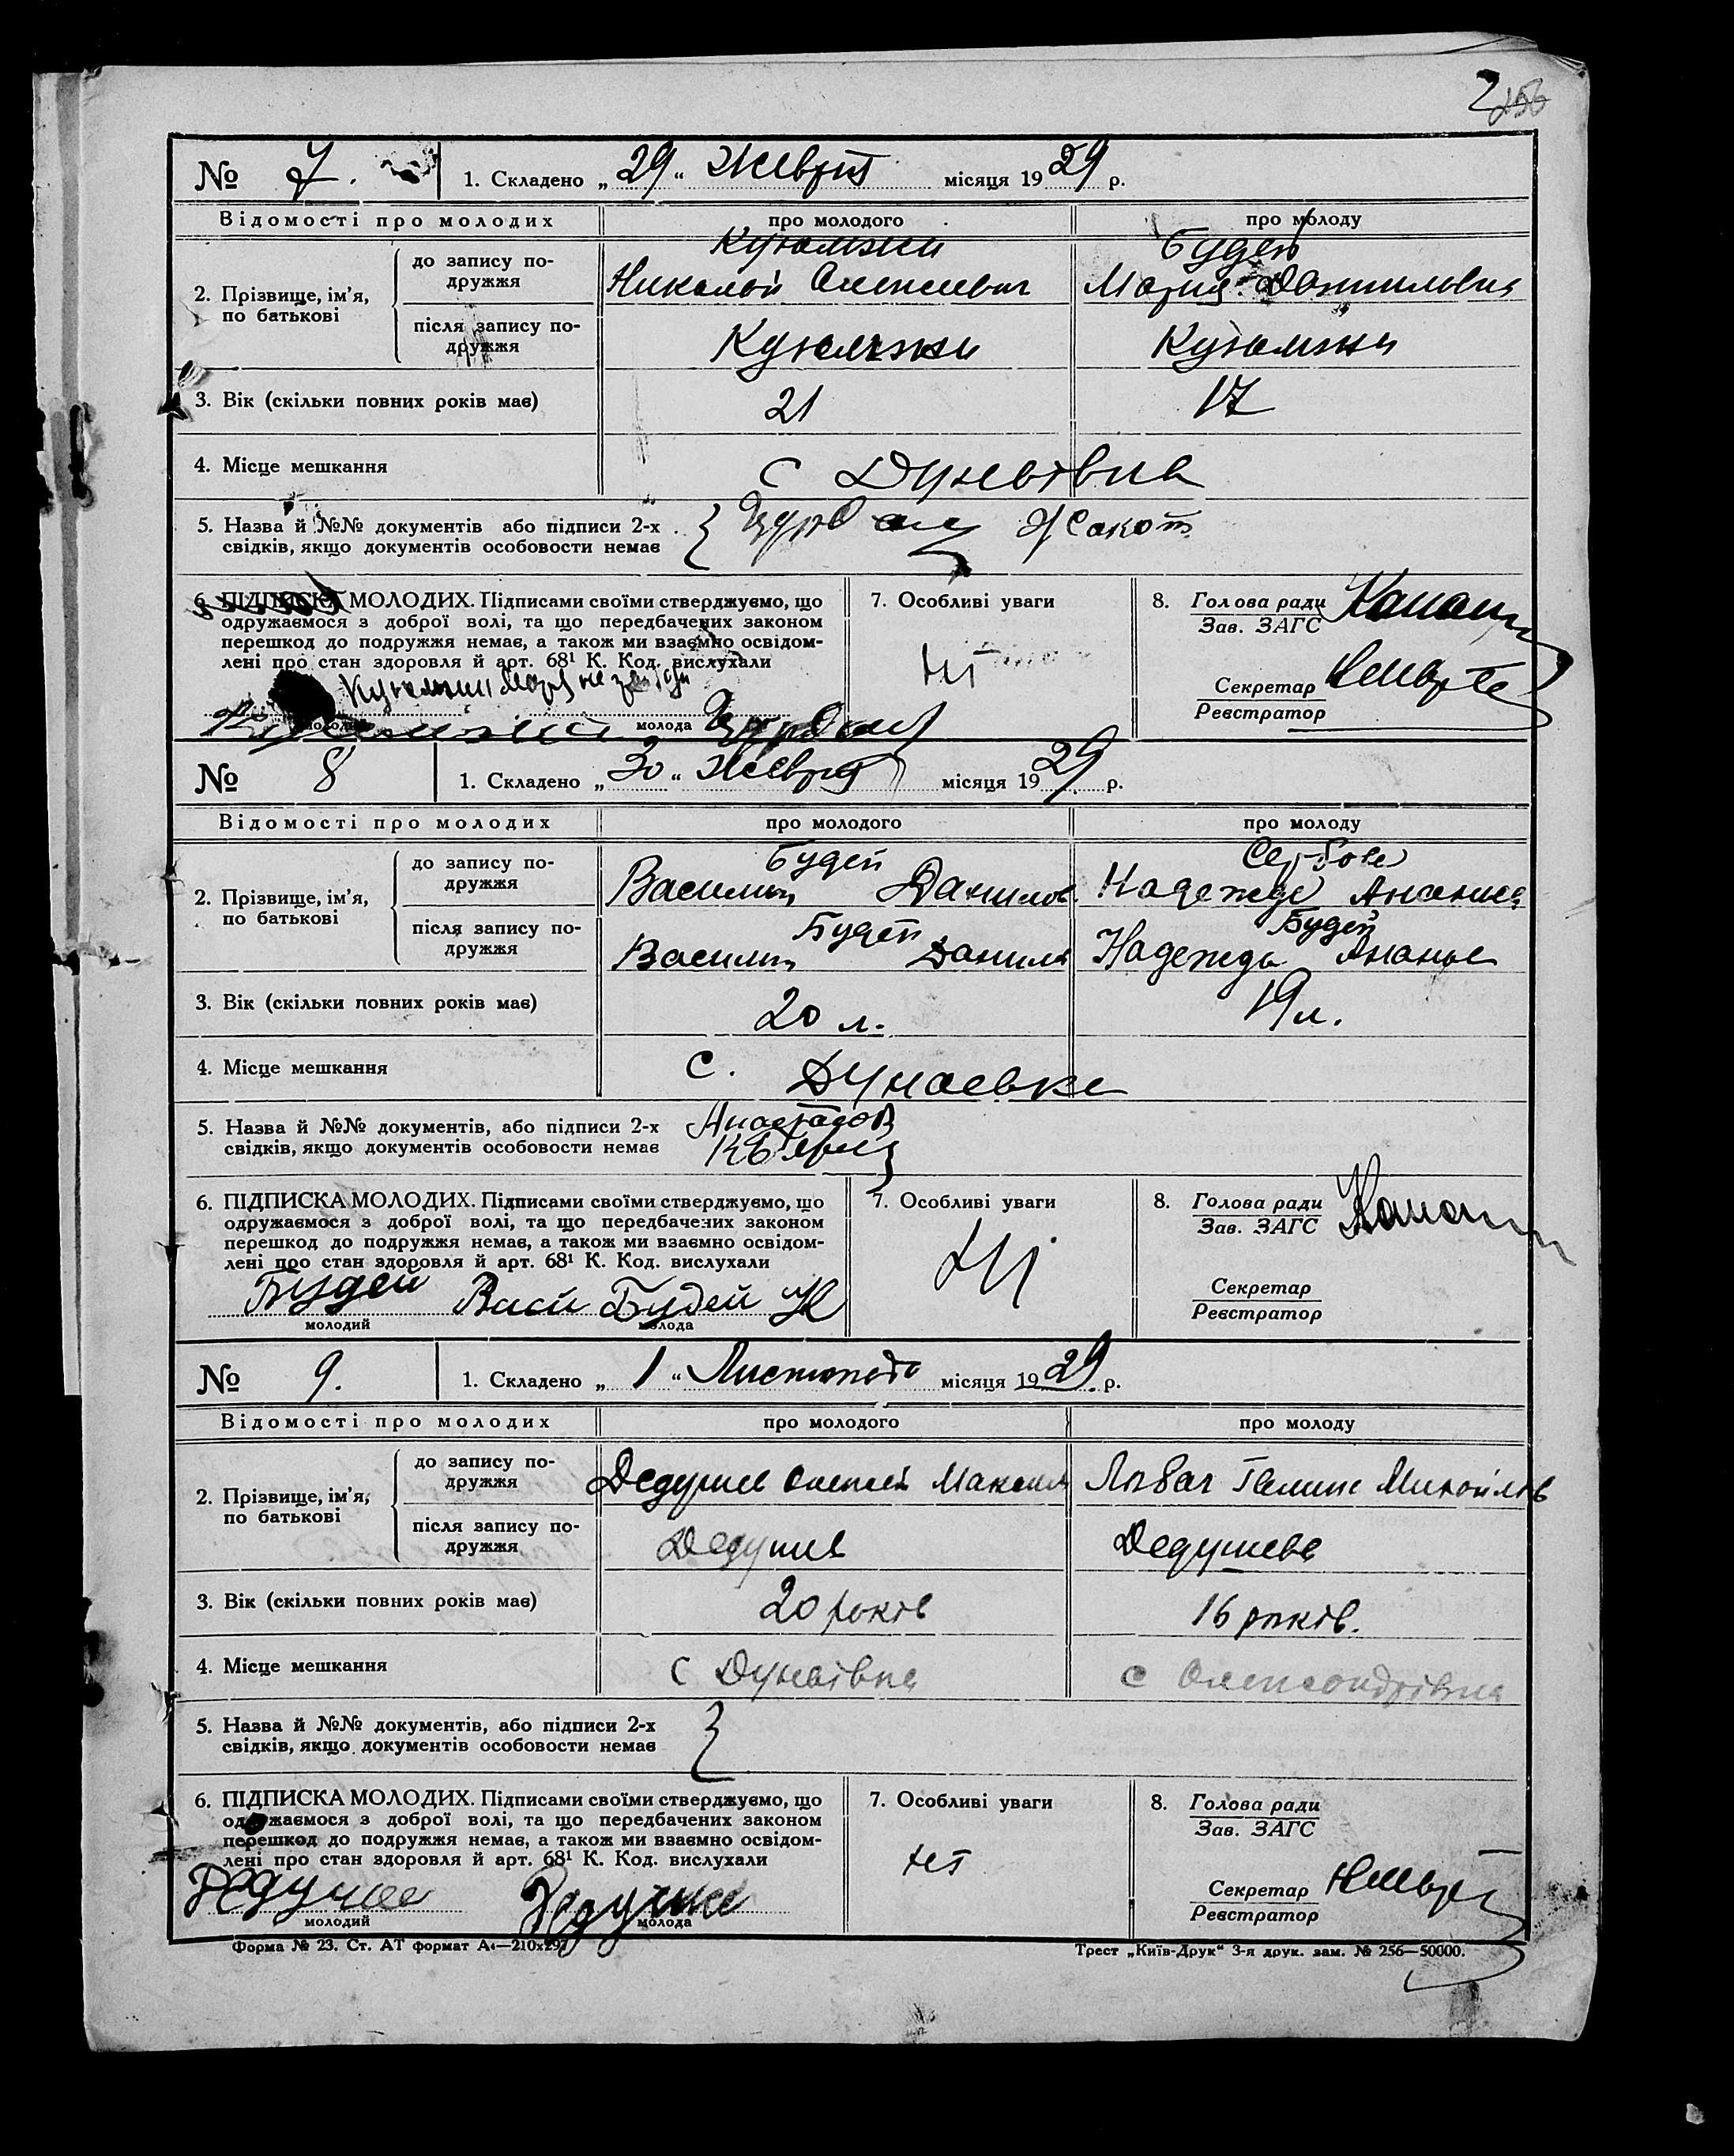 2 256
№ 7. 1. Складено „29“ Жевтт місяця 1929 р.
Відомості про молодих про молодого про молоду
2. Прізвище, ім’я, по батькові
до запису по-дружжя
Будей
Николай Алексиевич Мария Даниловна
після запису по-дружжя
3. Вік (скільки повних років має) 21 17
4. Місце мешкання с Дунаівка
5. Назва й №№ документів або підписи 2-х
свідків, якщо документів особовости немає
6. ПІДПИСКА МОЛОДИХ. Підписами своїми стверджуємо, що
одружаємося з доброї волі, та що передбачених законом
перешкод до подружжя немає, а також ми взаємно освідом-
лені про стан здоровля й арт. 68¹ К. Код. вислухали
молодий молода
7. Особливі уваги
8. Голова ради
Зав. ЗАГС
Секретар
Реєстратор
№ 8 1. Складено „30“ місяця 1929 р.
Відомості про молодих про молодого про молоду
2. Прізвище, ім’я, по батькові
до запису по-дружжя
Будей
Василий Данилов Надежда
після запису по-дружжя
Будей Будей
Василий Данилв Надежда
3. Вік (скільки повних років має) 20 л. 19 л.
4. Місце мешкання с. Дунаевка
5. Назва й №№ документів, або підписи 2-х
свідків, якщо документів особовости немає
6. ПІДПИСКА МОЛОДИХ. Підписами своїми стверджуємо, що
одружаємося з доброї волі, та що передбачених законом
перешкод до подружжя немає, а також ми взаємно освідом-
лені про стан здоровля й арт. 68¹ К. Код. вислухали
Будей Васи Будей Н
молодий молода
7. Особливі уваги
Ні
8. Голова ради
Зав. ЗАГС
Секретар
Реєстратор
№ 9. 1. Складено „1“ Листопада місяця 1929 р.
Відомості про молодих про молодого про молоду
2. Прізвище, ім’я, по батькові
до запису по-дружжя
Дедушев Олексей Максим Галина Михайлов
після запису по-дружжя
Дедушев Дедушева
3. Вік (скільки повних років має) 20 років 16 років.
4. Місце мешкання с Дунаівка с Олександрівка
5. Назва й №№ документів, або підписи 2-х
свідків, якщо документів особовости немає
6. ПІДПИСКА МОЛОДИХ. Підписами своїми стверджуємо, що
одружаємося з доброї волі, та що передбачених законом
перешкод до подружжя немає, а також ми взаємно освідом-
лені про стан здоровля й арт. 68¹ К. Код. вислухали
молодий молода
7. Особливі уваги
8. Голова ради
Зав. ЗАГС
Секретар
Реєстратор
Форма № 23. Ст. АТ формат А4—210х297
Трест „Київ-Друк“ 3-я друк. зам. № 256—50000.